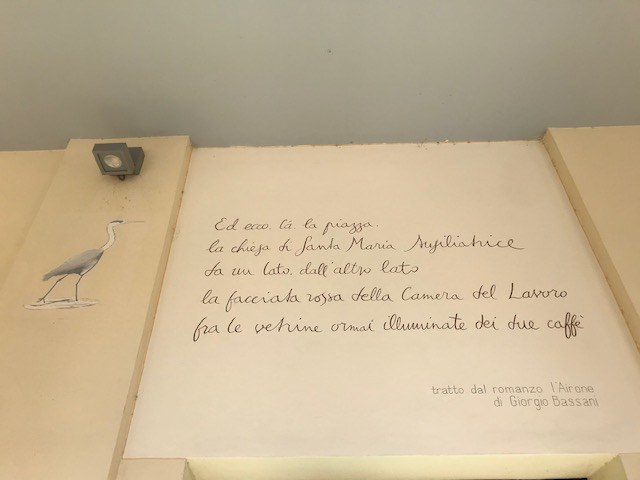 Ed ecco, là, la piazza,
la chiesa di Santa Maria Ausiliatrice
da un lato, dall'altro lato
la facciata rossa della Camera del Lavoro
fra le vetrine ormai illuminate dei due caffè
tratto dal romanzo l'Airone
di Giorgio Bassani